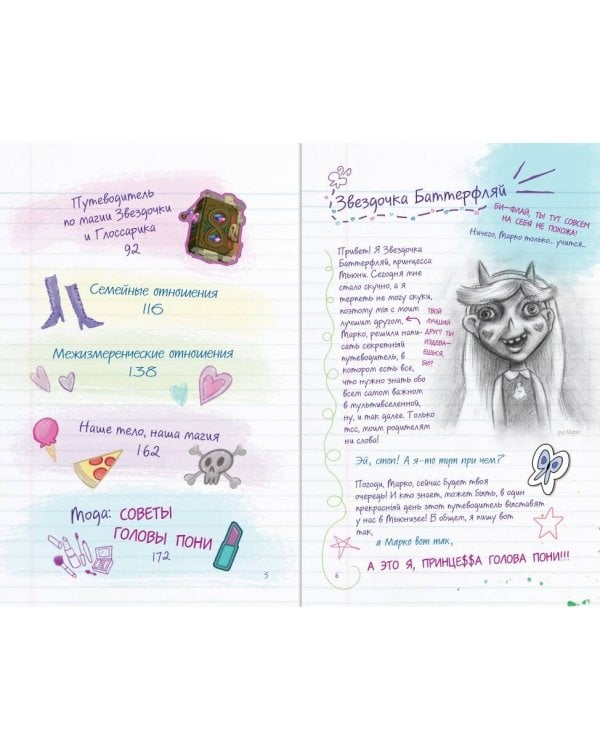 Путеводитель
по магии Звездочки
и Глоссарика
92
Семейные отношения
116
Межизмеренческие отношения
138
Наше тело, наша магия
162
Мода: СОВЕТЫ
ГОЛОВЫ ПОНИ
172
5
Звездочка Баттерфляй
БИ-ФЛАЙ, ТЫ ТУТ СОВСЕМ
НА СЕБЯ НЕ ПОХОЖА!
Ничего, Марко только... учится...
Привет! Я Звездочка
Баттерфляй, принцесса
Мьюни. Сегодня мне
стало скучно, а я
терпеть не могу скуки,
поэтому мы с моим
лучшим другом,
Марко, решили напи-
сать секретный
путеводитель, в
котором есть все,
что нужно знать обо
всем самом важном
в мультивселенной,
ну, и так далее. Только
тсс, моим родителям
ни слова!
ТВОЙ
ЛУЧШИЙ
ДРУГ? ТЫ
ИЗДЕВА-
ЕШЬСЯ,
БИ?
рис. Марко
Эй, стоп! А я-то тут при чем?
Погоди, Марко, сейчас будет твоя
очередь! И кто знает, может быть, в один
прекрасный день этот путеводитель выставят
у нас в Мьюнизее! В общем, я пишу вот
так,
а Марко вот так,
А ЭТО Я, ПРИНЦЕ$$А ГОЛОВА ПОНИ!!!
6